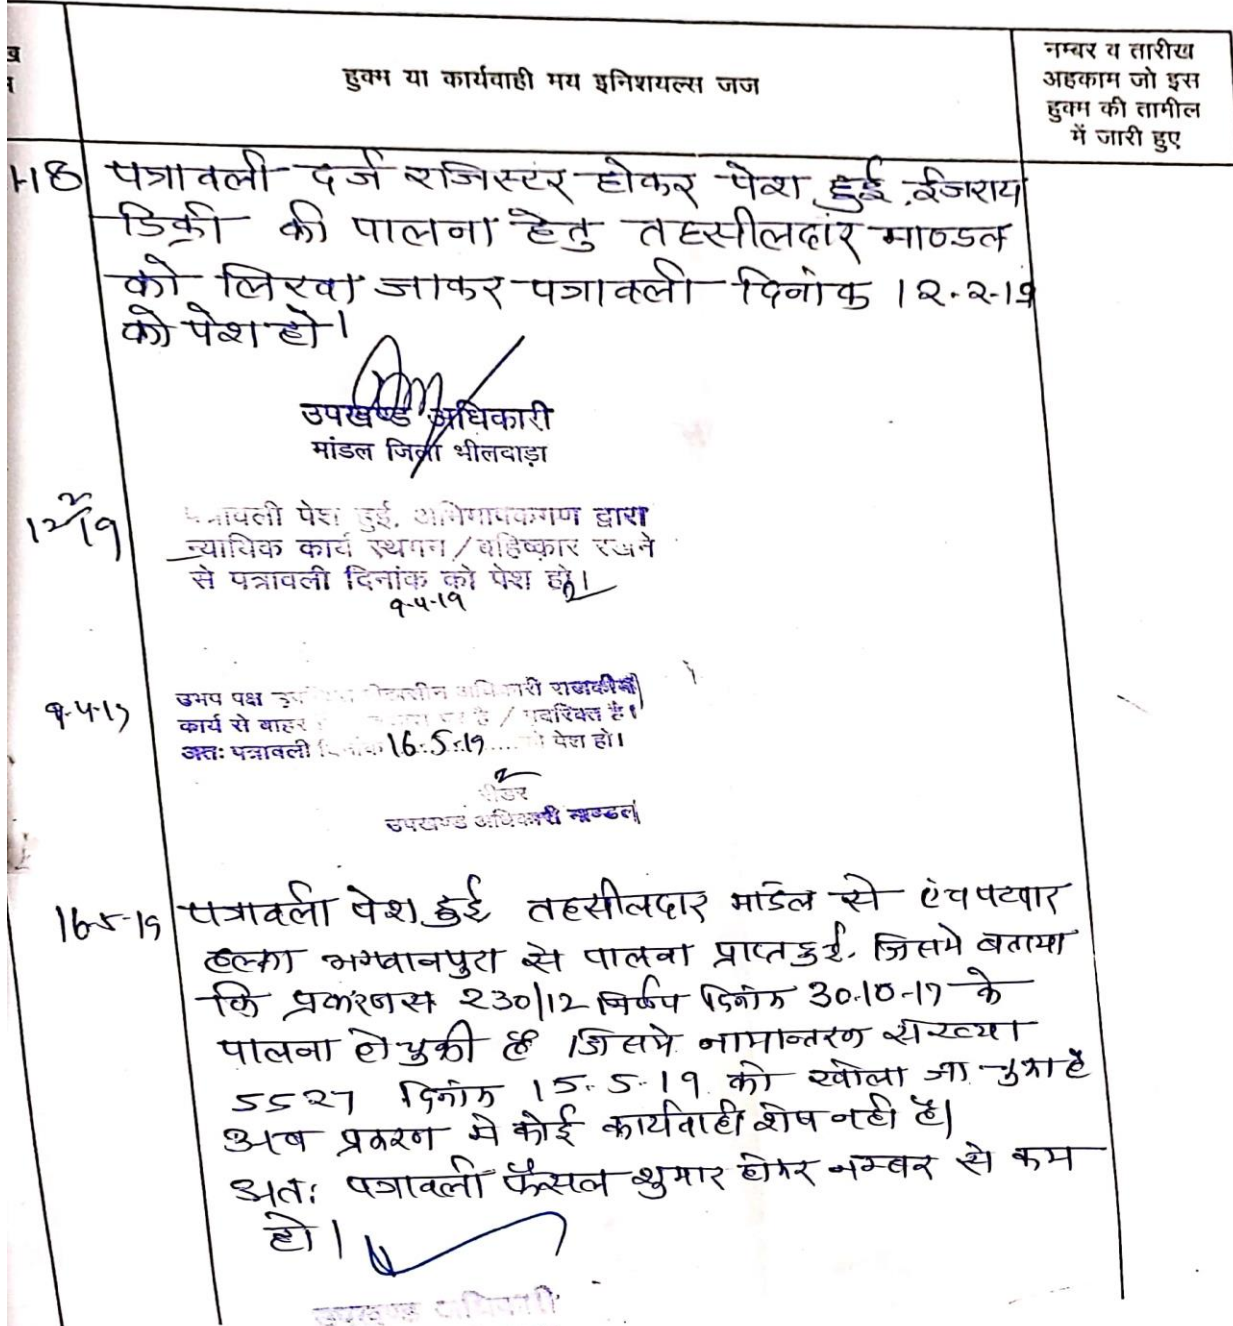 हुक्म या कार्यवाही मय इनिशयल्स जज
नम्बर व तारीख
अहकाम जो इस
हुक्म की तामील
में जारी हुए
पत्रावली दर्ज रजिस्टर होकर पेश हुई. ईजराय
डिक्री की पालना हेतु तहसीलदार माण्डल
को लिखा जाकर पत्रावली दिनांक 12-2-19
को पेश हो।
उपखण्ड अधिकारी
मांडल जिला भीलवाड़ा
12/2/19
पत्रावली पेश हुई, अभिभाषकगण द्वारा
न्यायिक कार्य स्थगन / बहिष्कार रखने
से पत्रावली दिनांक को पेश हो।
9-4-19
9-4-19
उभय पक्ष अधिकारी राजकीय
कार्य से बाहर है / पदरिक्त है।
अतः पत्रावली दिनांक 16.5.19 को पेश हो।
रीडर
उपखण्ड अधिकारी माण्डल
16-5-19
पत्रावली पेश हुई तहसीलदार मांडल से एंव पटवार
हल्का भगवानपुरा से पालना प्राप्त हुई. जिसमे बताया
कि प्रकरण स 230/12 निर्णय दिनांक 30-10-17 के
पालना हो चुकी है। जिसमे नामान्तरण संख्या
5527 दिनांक 15-5-19 को खोला जा चुका है
अब प्रकरण मे कोई कार्यवाही शेष नही है।
अतः पत्रावली फैसल शुमार होकर नम्बर से कम
हो।
उपखण्ड अधिकारी